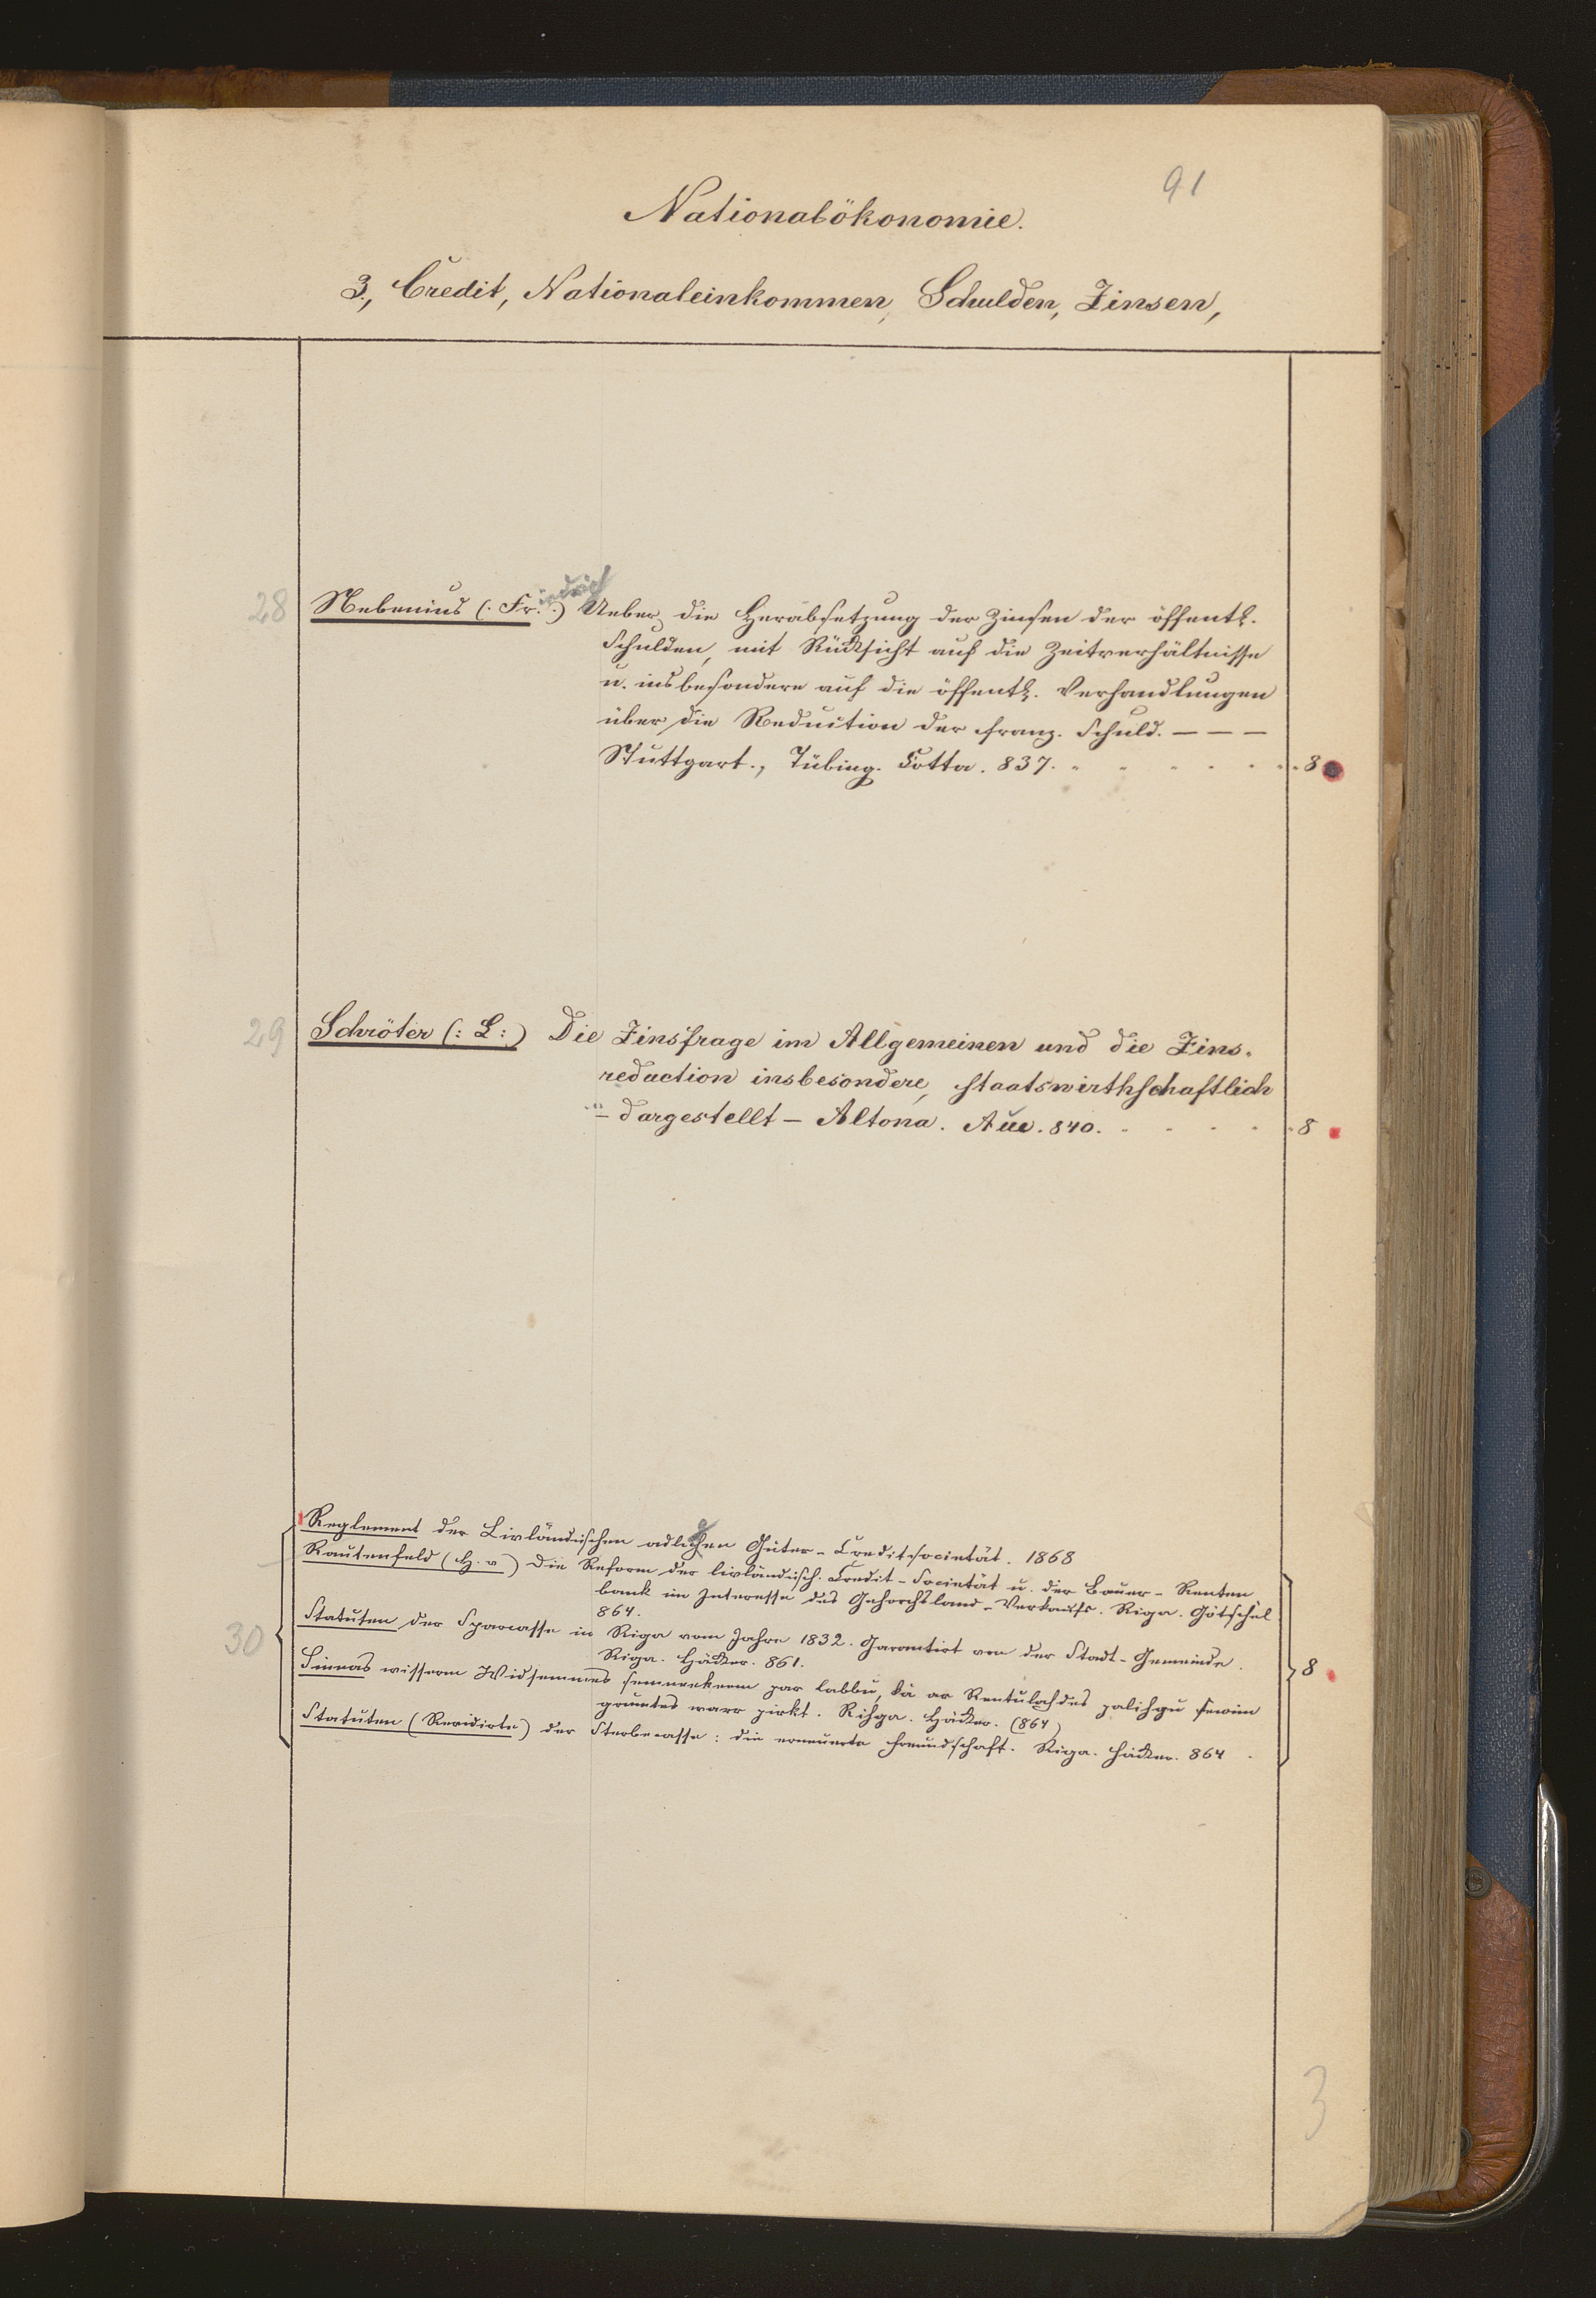 91
Nationalökonomie.
3., Credit, Nationaleinkommen, Schulden, Zinsen,
28 Nebenius (: Fr.iedrich :) Ueber die Herabsetzung der Zinsen der öffentl.
Schulden, mit Rücksicht auf die Zeitverhältnisse
u. insbesondere auf die öffentl. Verhandlungen
über die Reduction der franz. Schuld. — — —
Stuttgart., Tübing. Cotta. 837. 8
29 Schröter (: L :) Die Zinsfrage im Allgemeinen und die Zins-
reduction insbesondere, staatswirthschaftlich
dargestellt — Altona. Aue. 840. 8
Reglement der Livländischen adligen Güter-Creditsocietät. 1868
Rautenfeld (H. v) Die Reform der livländisch. Credit-Societät u. der Bauer-Renten
bank im Interesse des Gehorchsland-Verkaufs. Riga. Götschel
864.
30 Statuten der Sparcasse in Riga vom Jahre 1832. Garantirt von der Stadt-Gemeinde.
Riga. Häcker. 861. 8
Sinnas wisseem Widsemmes semneekeem par labbu, kà ar Rentulahdes palihgu semm
gruntes warr pirkt. Rihga. Häcker. (864)
Statuten (Revidirte) der Sterbecasse: die erneuerte Freundschaft. Riga. Häcker. 864.
3